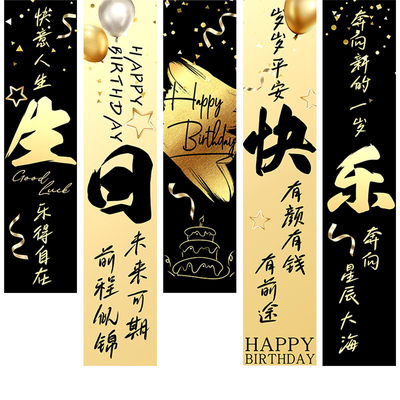 快意人生
生
Good
Luck
乐得自在
HAPPY
BIRTHDAY
日
未来可期
前程似锦
Happy
Birthday
岁岁平安
快
有颜有钱
有前途
HAPPY
BIRTHDAY
奔向新的一岁
乐
奔向
星辰大海